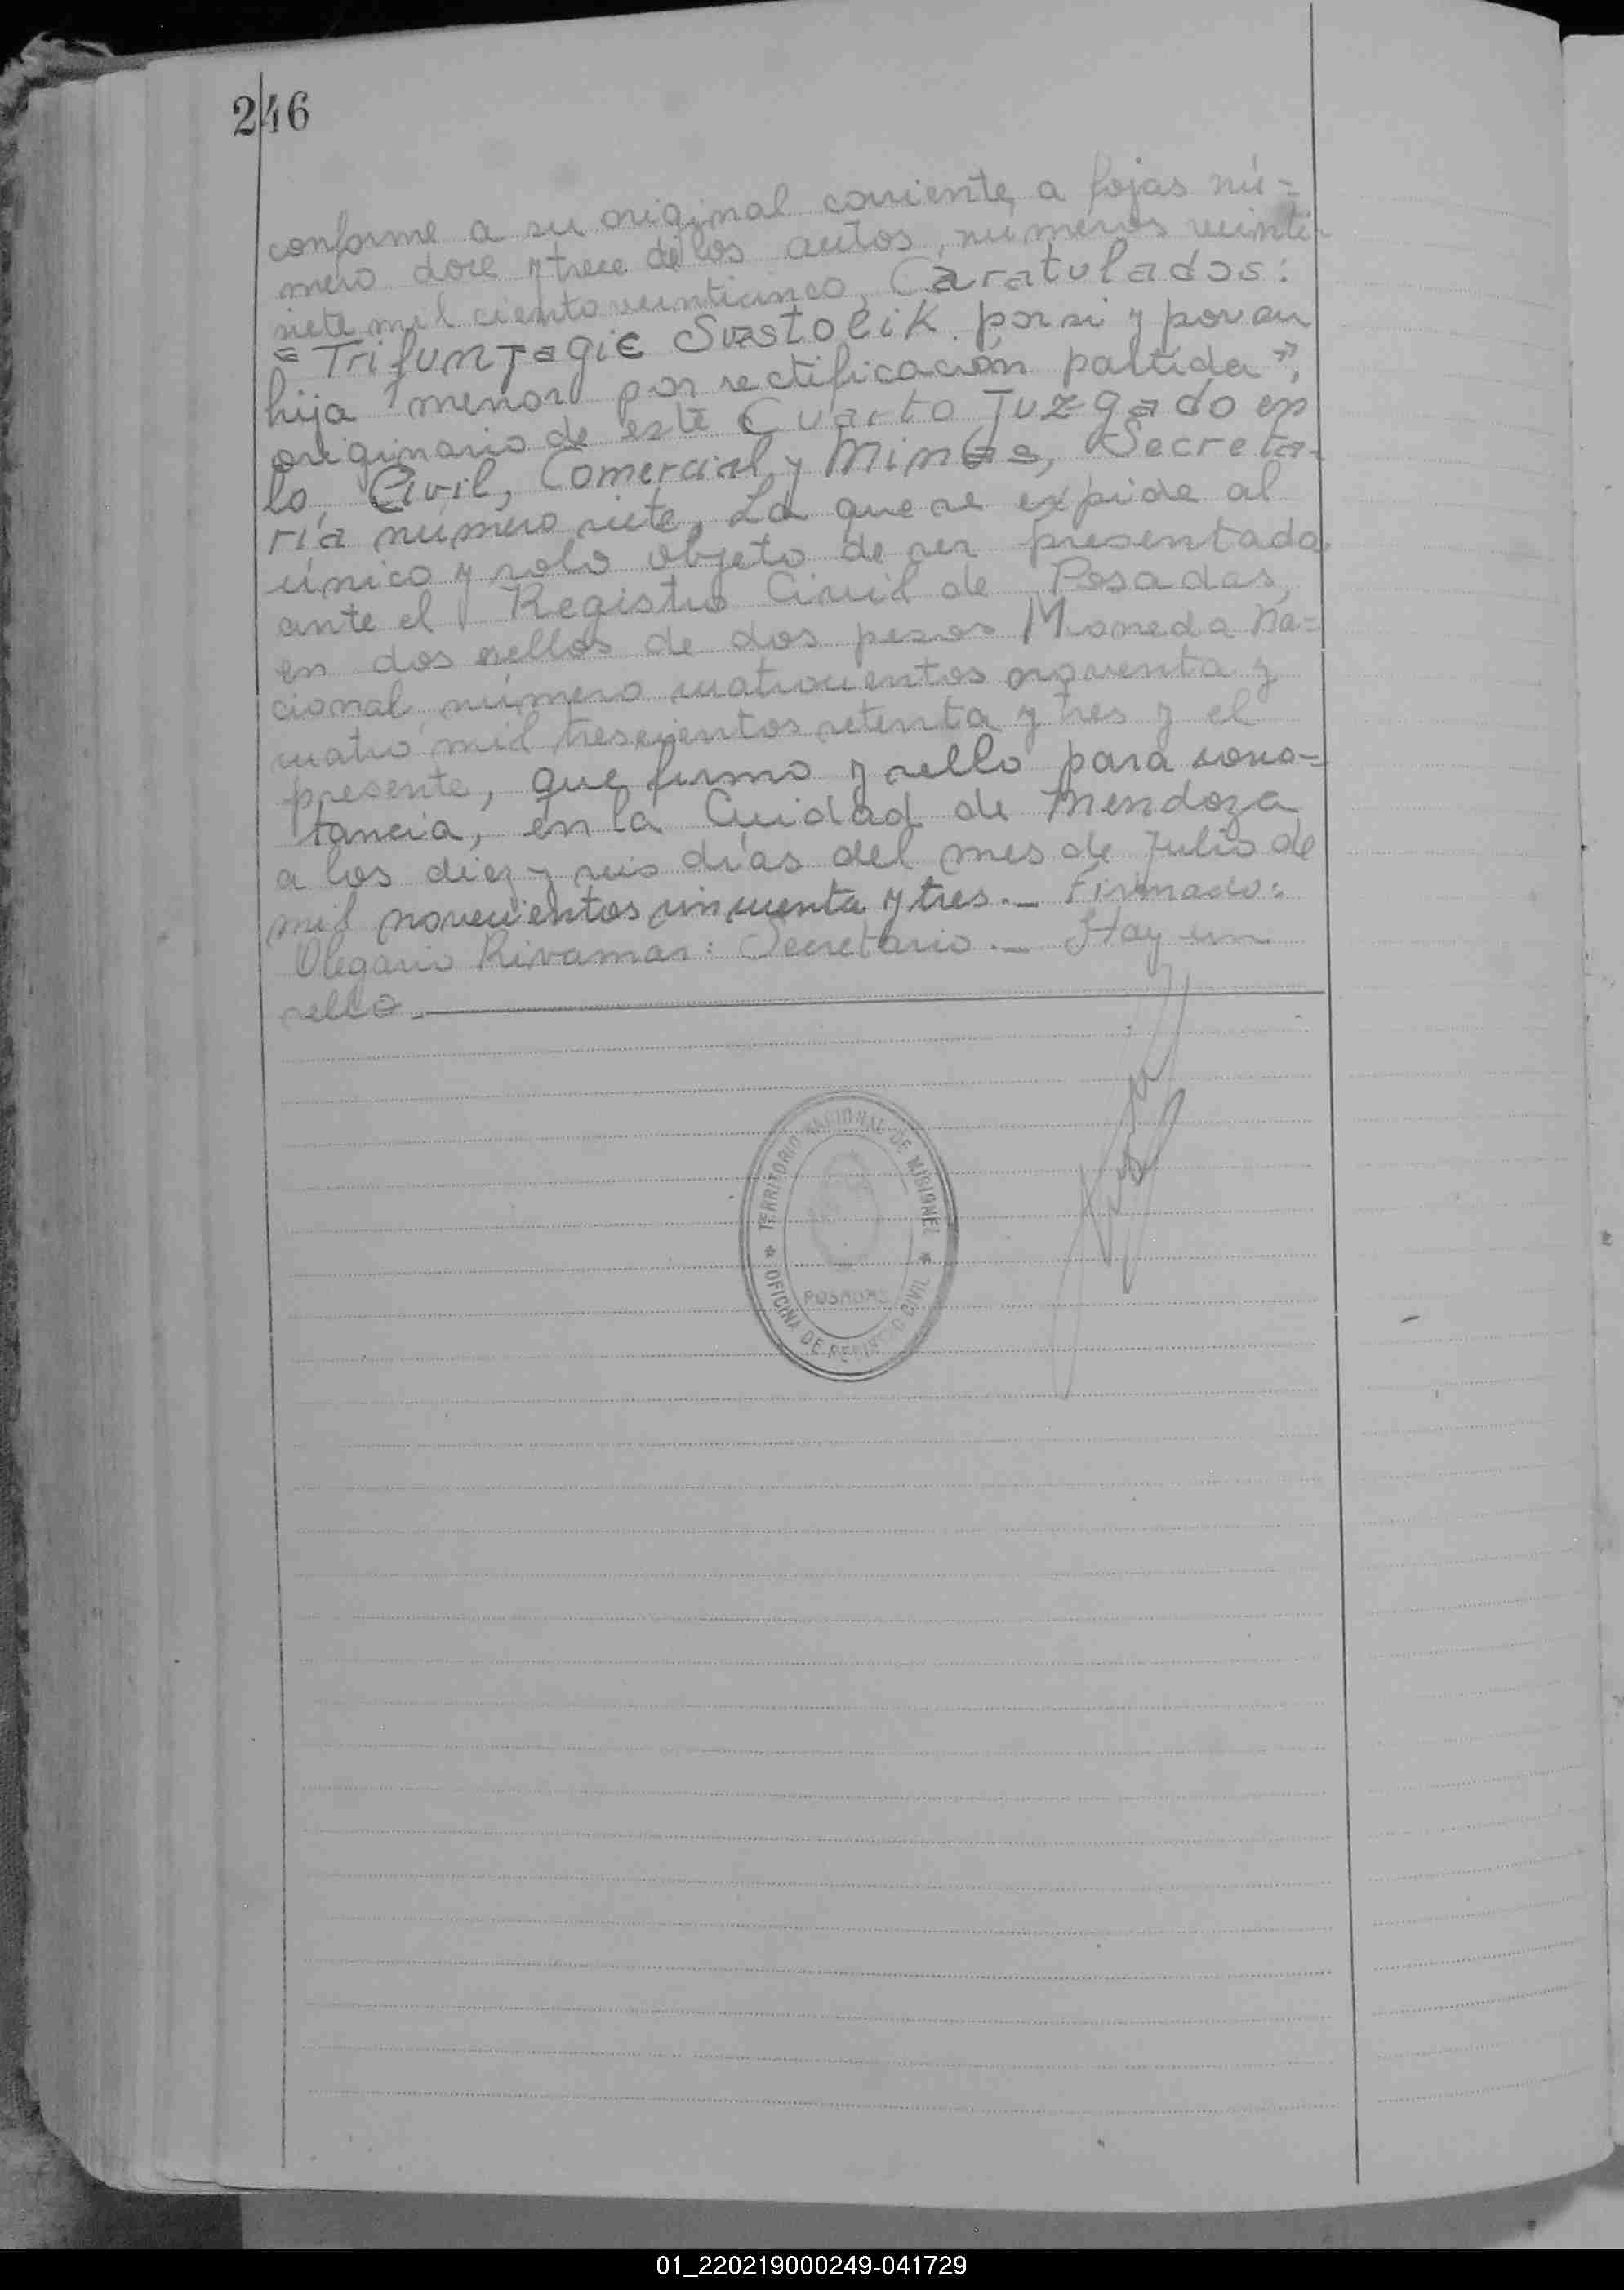 246
conforme a su original corriente a fojas nú=
mero doce y trece de los autos, números veinti-
siete mil ciento veinticinco, Caratulados:
"Trifun Jagic Svastolik por si y por su
hija menor por rectificación partida",
originario de este Cuarto Juzgado en
lo, Civil, Comercial y Minas, Secreta-
ría número siete, La que se expide al
único y solo objeto de ser presentada
ante el Registro Civil de Posadas,
en dos sellos de dos pesos Moneda Na=
cional número cuatrocientos noventa y
cuatro mil trescientos setenta y tres y el
presente, que firmo y sello para cons=
tancia, en la Cuidad de Mendoza
a los diez y seis días del mes de Julio de
mil novecientos cincuenta y tres.— Firmado:
Olegario Rivamar: Secretario.— Hay un
sello.—
TERRITORIO NACIONAL DE MISIONES
POSADAS
OFICINA DE REGISTRO CIVIL
01_220219000249-041729